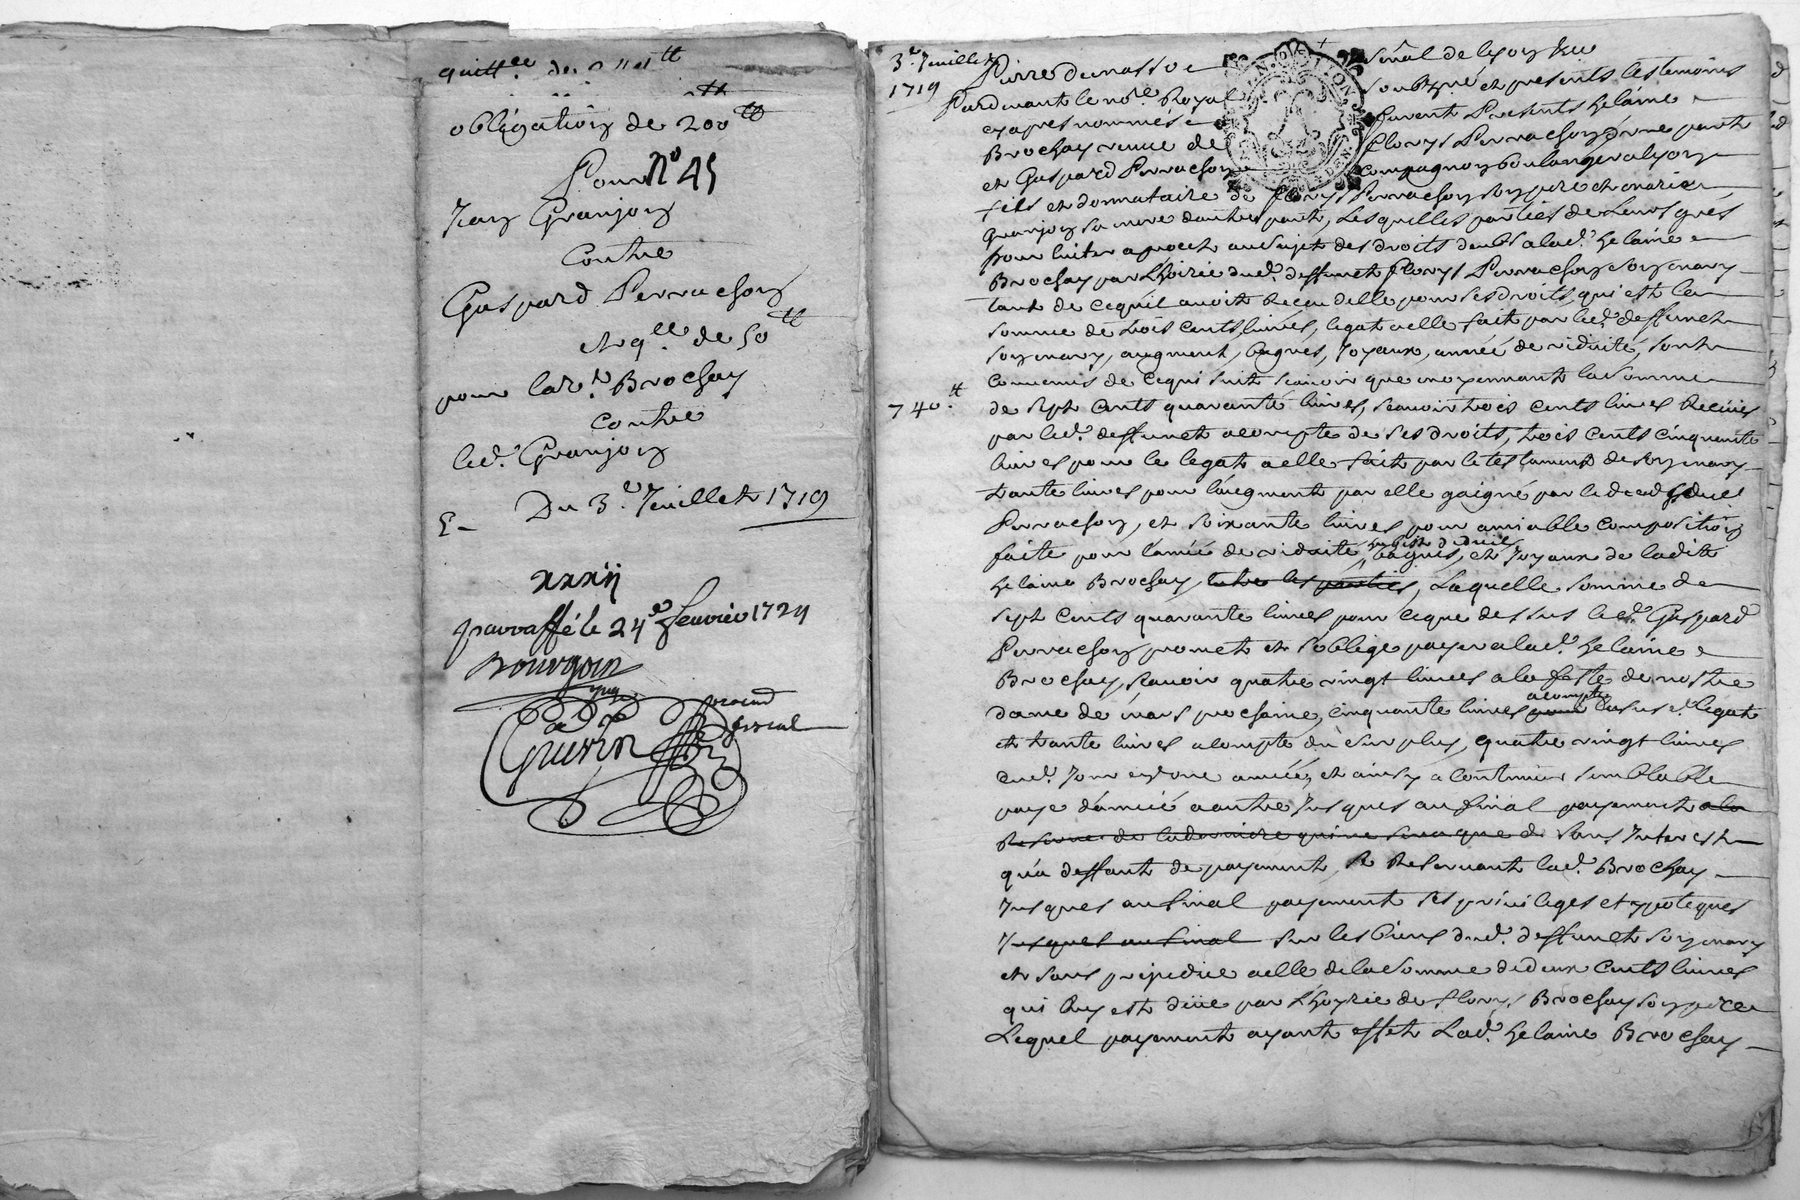 obligation de 200 tt
Pour N° 45
Jean Granjon
Contre
Gaspard Perrachon
de 50 tt
pour la Brochay
contre
led. Granjon
Du 3e Juillet 1719
xxxij
parraffé le 24e feuvier 1729
Bourgoin
Guerin
procureur
fiscal
3e Juillet
1719
Pardevant le no.re Royal en la senêl de Lyon
soubzné et presents les temoins
cy apres nommés furent Presents helaine
Brochay veuve de Flory Perrachon d'une part
et Gaspard Perrachon compagnon boulanger a lyon
fils et donnataire de Flory Perrachon son pere et marie
Granjon sa mere dautre part, Lesquelles parties de Leurs grés
pour éuiter a procet au sujet des droits deubs a lad. helaine
Brochay par Lhoirie dud. deffunct Flory Perrachon son mary
tant de cequil auoit Receu delle pour ses droits, qui est la
somme de trois cents liures, legat a elle fait par led. deffunct
son mary, augment, bagues, Joyaux, année de viduité, sont
conuenus de cequi suit scauoir que moyennant la somme
740 tt
de sept cents quarante liures, scauoir trois cents liures Receües
par led. deffunct acompte de ses droits, trois cents cinquante
liures pour le legat a elle fait par le testament de son mary
trante liures pour l'augment par elle gaigné par le deced dud.
Perrachon, et soixante liures pour amiable composition
faite pour l'année de viduité, habist de deüil, bagues, et Joyaux de ladite
helaine Brochay entre les parties, Laquelle somme de
sept cents quarante liures pour ceque dessus led. Gaspard
Perrachon promet et s'oblige payer a lad. helaine
Brochay, scauoir quatre vingt liures a la feste de nostre
dame de mars prochaine, cinquante liures pour acompte dud. legat
et trante liures acompte du surplus, quatre vingt liures
aud. Jour en une année, et ainsy a continuer semblable
paye d'année a autre Jusques au final payement a la
de la derniere sans Interest
qu'a deffaut de payement, se Reseruant lad. Brochay
Jusques au final payement ses priuileges et ypoteques
Jusques au final sur les biens dud. deffunct son mary
et sans prejudice a elle de la somme de deux cents liures
qui luy est düe par Lhoyrie de Flory Brochay son pere
Lequel payement ayant effet Lad. helaine Brochay